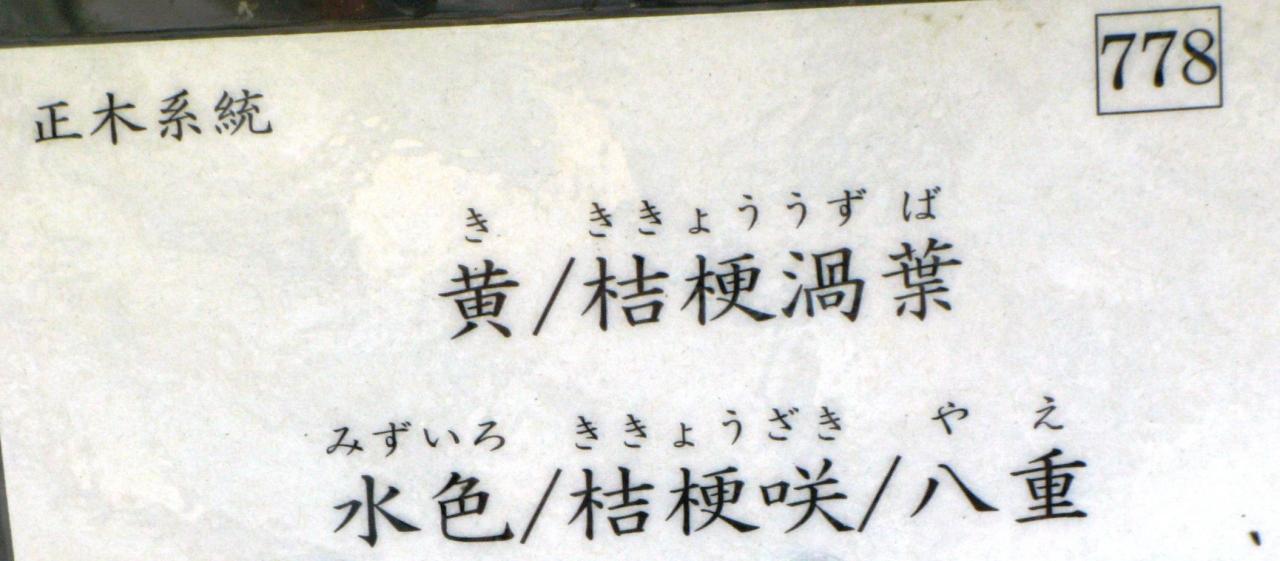 778
正木系統
き ききょううずば
黄/桔梗渦葉
みずいろ ききょうざき やえ
水色/桔梗咲/八重